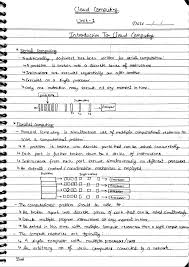 Cloud Computing
Unit-1
Date
Introduction To Cloud Computing
Serial Computing
Traditionally, software has been written for serial computation
A problem is broken into a discrete series of instructions
Instructions are executed sequentially one after another
Executed on a single processor
Only one instruction may execute at any moment in time
Parallel Computing
Parallel Computing is simultaneous use of multiple computational resources to
solve a computational problem
A problem is broken into discrete parts that can be solved concurrently
Each part is further broken down to a series of instructions
Instructions from each part execute simultaneously on different processors
An overall control/coordination mechanism is employed
The computational problem should be able to
Be broken apart into discrete pieces of work that can be solved simultaneously
Execute multiple program instructions at any moment in time
Be solved in less time with multiple compute resources than with a single compute
The compute resources are typically
A single computer with multiple processors/cores
An arbitrary no. of such computers connected by a network